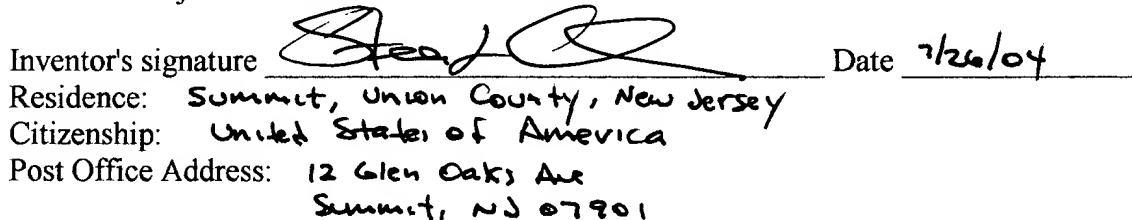 Inventor's signature Date 7/26/04
Residence: Summit, Union County, New Jersey
Citizenship: United States of America
Post Office Address: 12 Glen Oaks Ave
Summit, NJ 07901